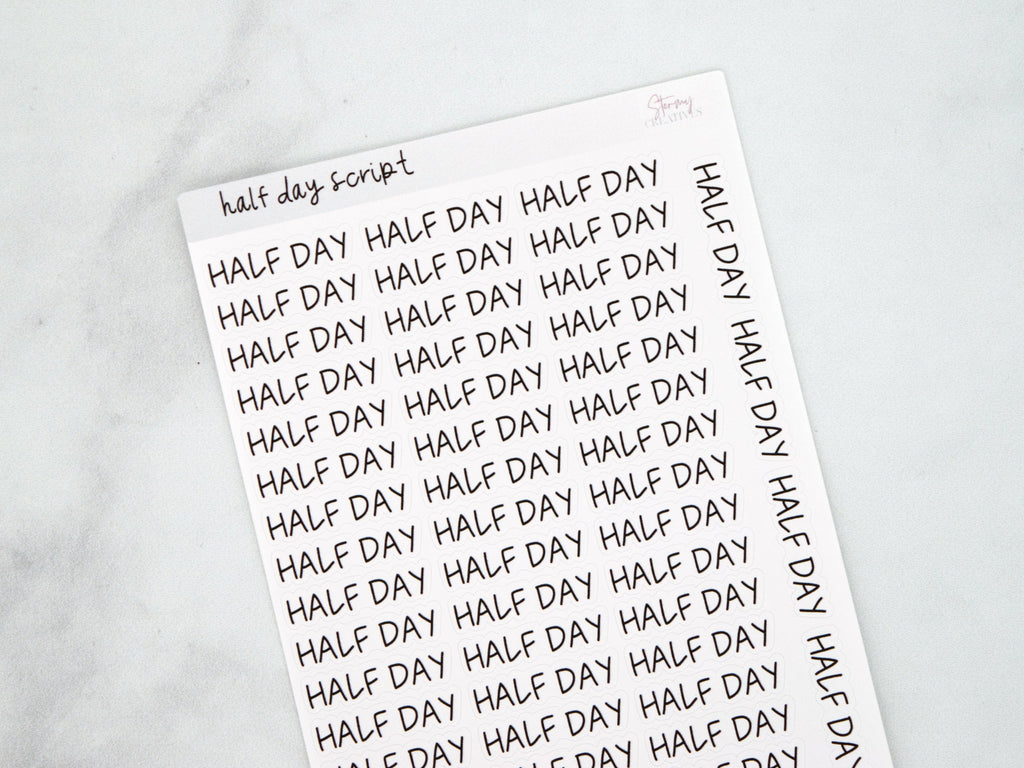 Stormy
CREATIVES
half day script
HALF DAY HALF DAY HALF DAY
HALF DAY HALF DAY HALF DAY
HALF DAY HALF DAY HALF DAY
HALF DAY HALF DAY HALF DAY
HALF DAY HALF DAY HALF DAY
HALF DAY HALF DAY HALF DAY
HALF DAY HALF DAY HALF DAY
HALF DAY HALF DAY HALF DAY
HALF DAY HALF DAY HALF DAY
HALF DAY HALF DAY HALF DAY
HALF DAY HALF DAY HALF DAY
HALF DAY HALF DAY HALF DAY
HALF DAY HALF DAY HALF DAY
HALF DAY HALF DAY
DAY
HALF DAY
HALF DAY
HALF DAY
HALF DAY